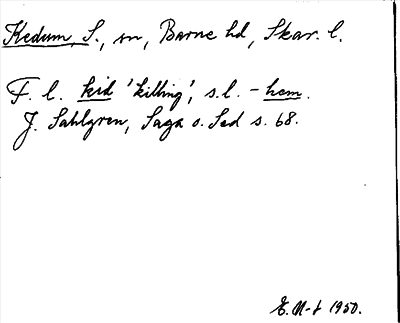 Kedum, S., sn, Barne hd, Skar. l.
F. l. kid 'killing', s.l. - hem.
J. Sahlgren, Saga o. Sed s. 68.
E. N-t 1950.